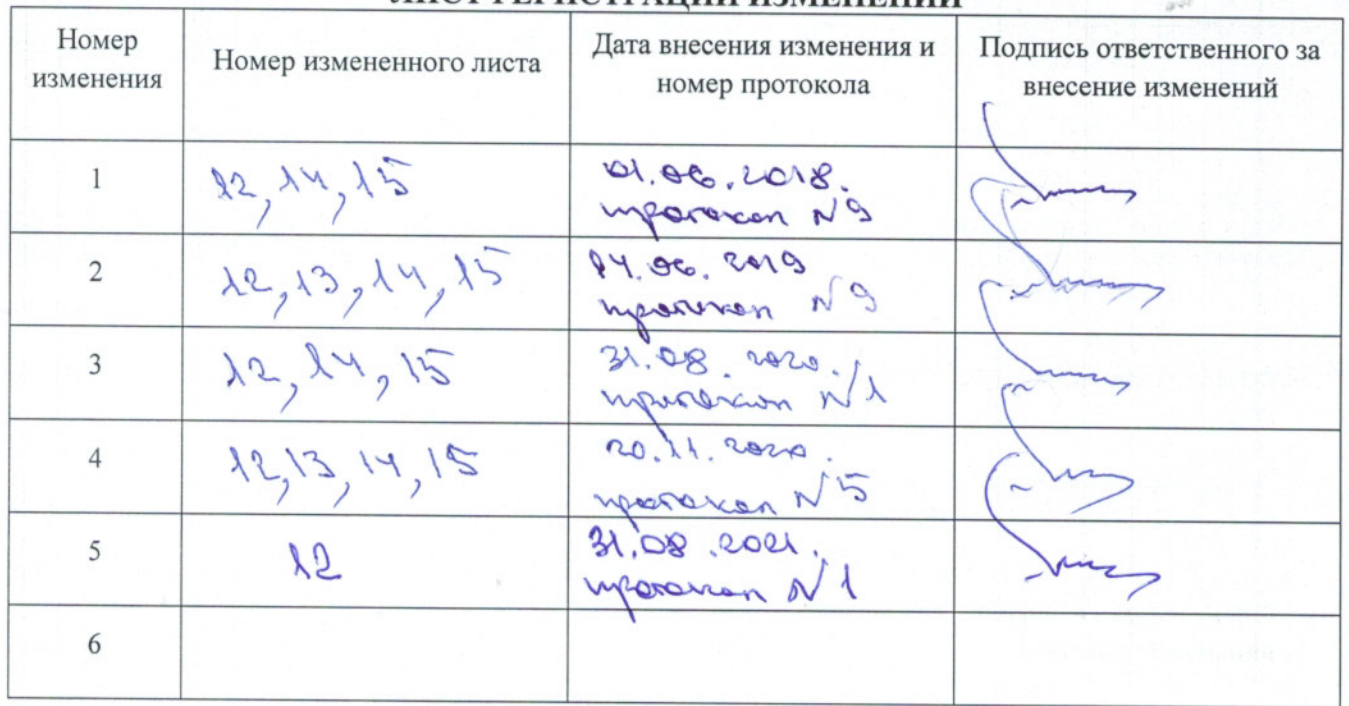 ЛИСТ РЕГИСТРАЦИИ ИЗМЕНЕНИЙ
Номер изменения
Номер измененного листа
Дата внесения изменения и номер протокола
Подпись ответственного за внесение изменений
1
12, 14, 15
01.06.2018.
протокол N 9
2
12, 13, 14, 15
14.06.2019
протокол N 9
3
12, 14, 15
31.08.2020.
протокол N 1
4
12, 13, 14, 15
20.11.2020.
протокол N 5
5
12
31.08.2021.
протокол N 1
6